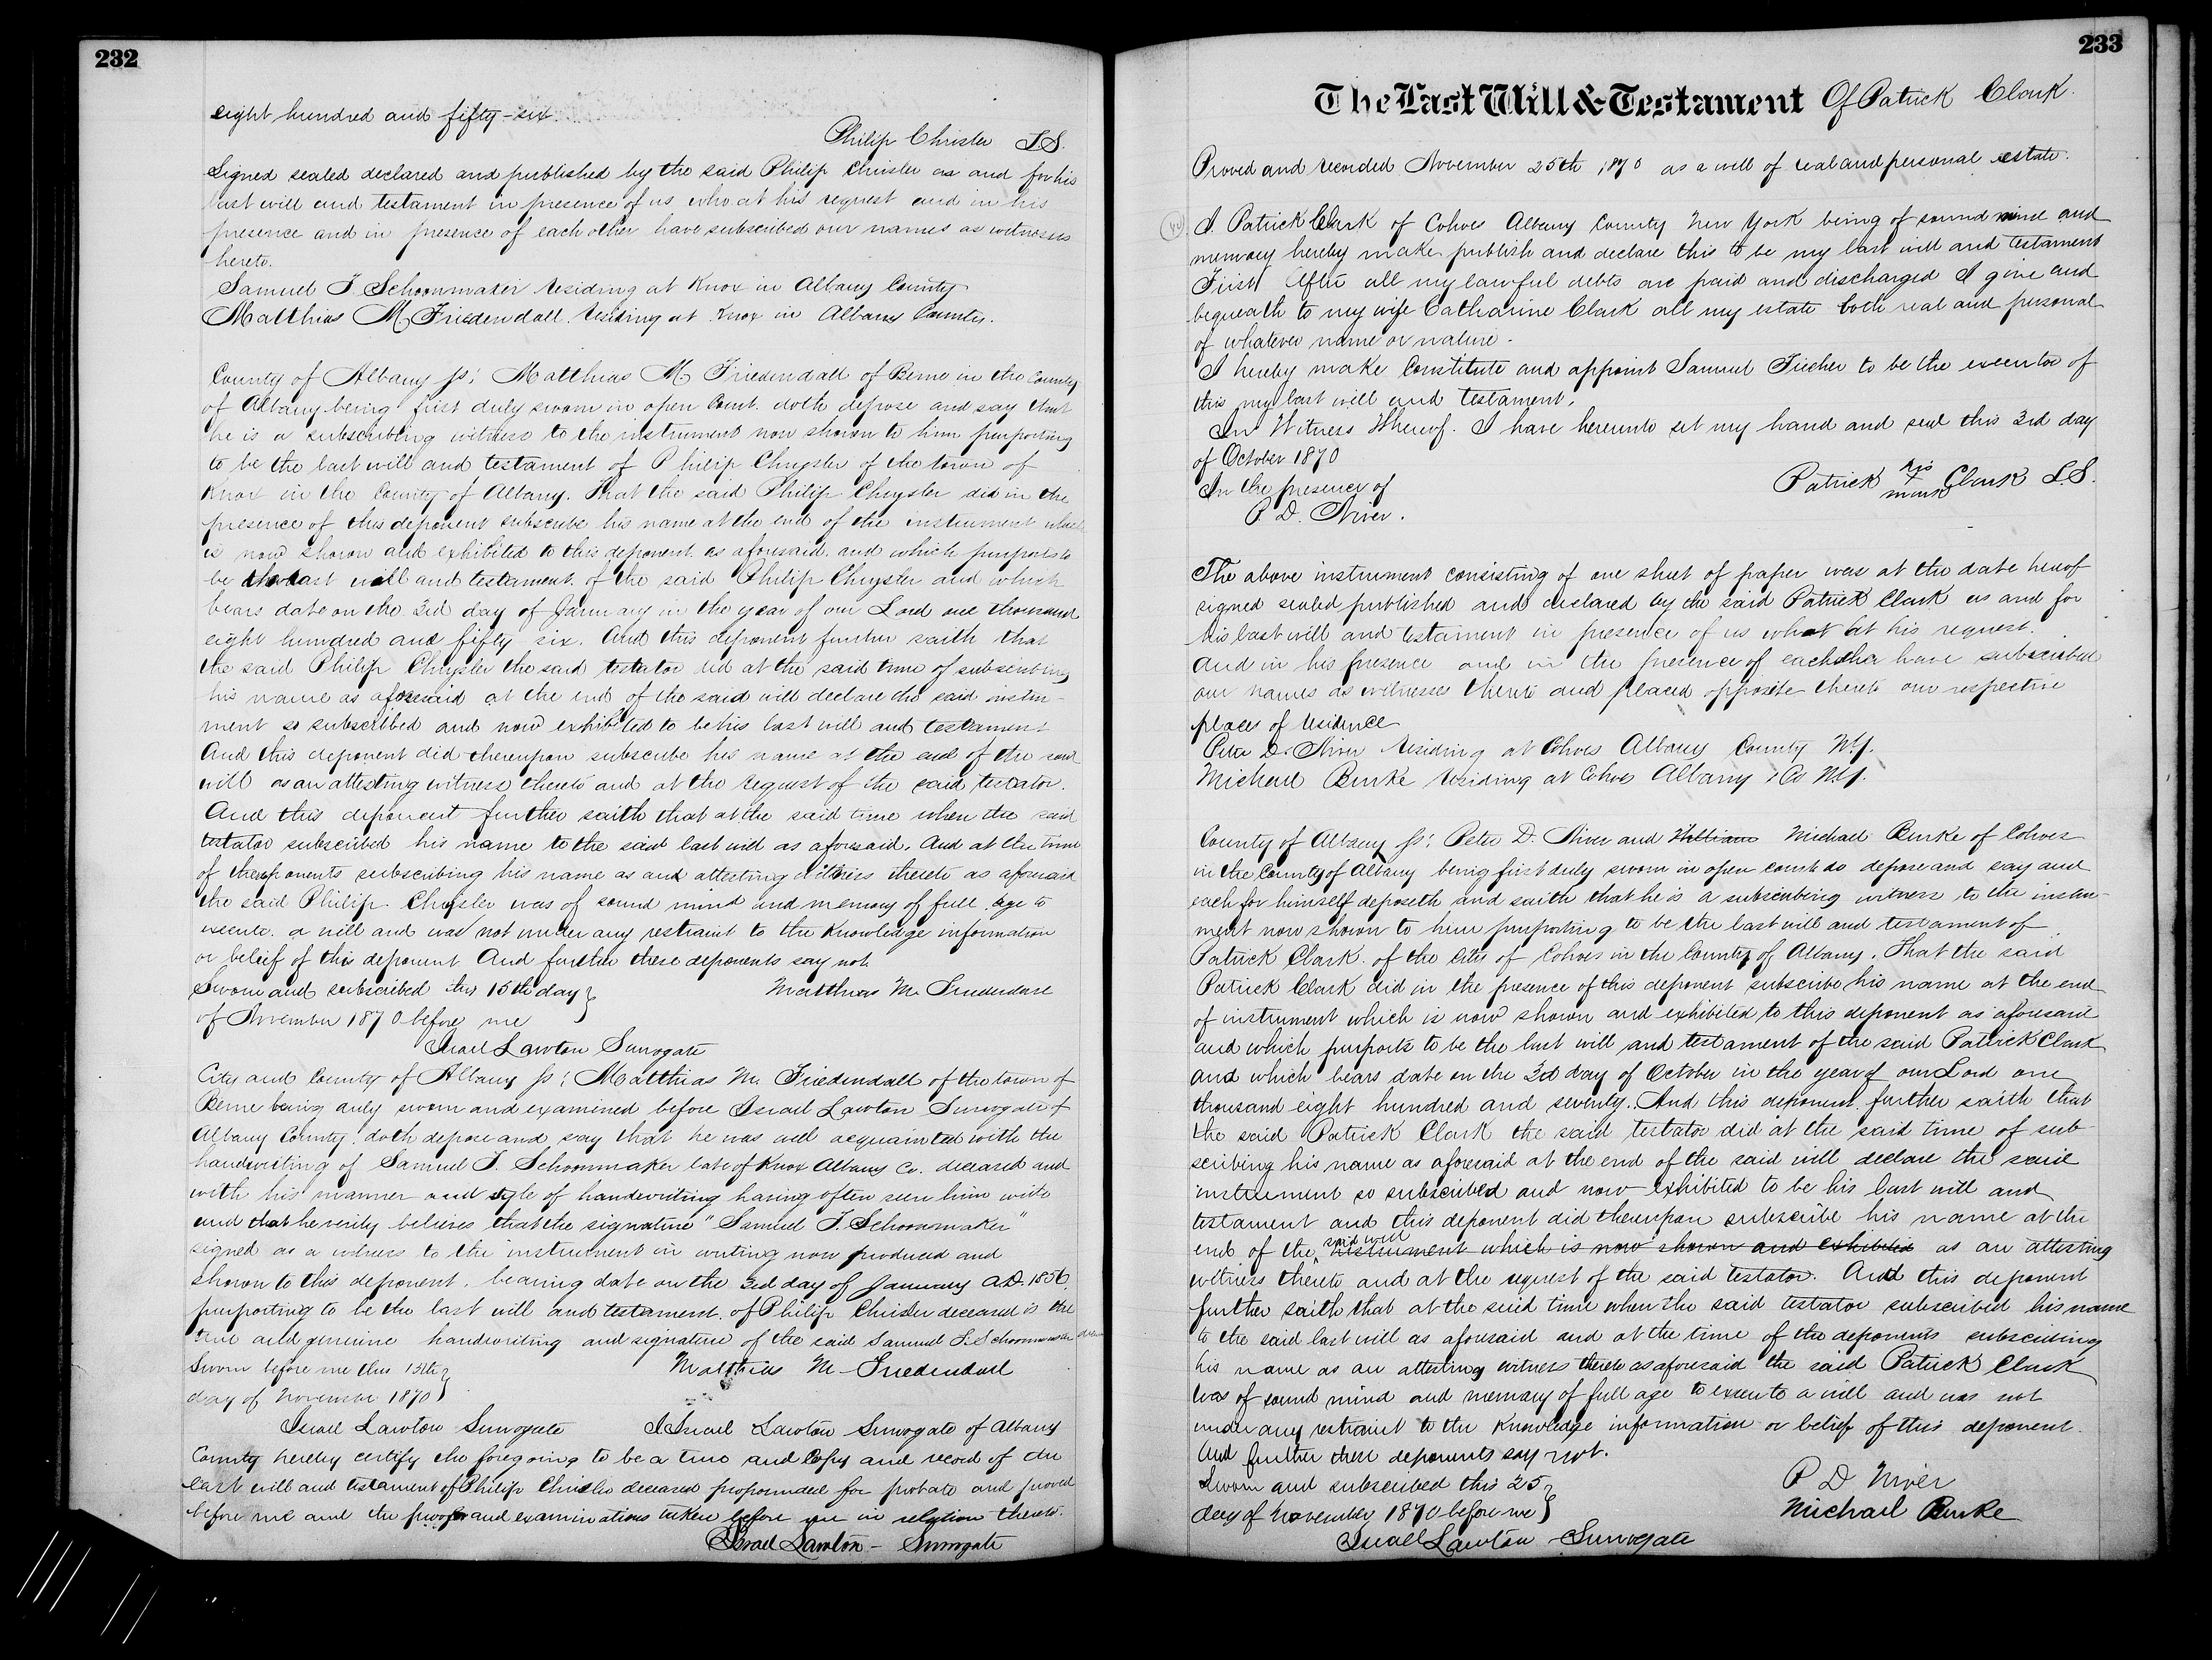 232
eight hundred and fifty-six.
Philip Chrisler L.S.
Signed sealed declared and published by the said Philip Chrisler as and for his
last will and testament in presence of us who at his request and in his
presence and in presence of each other have subscribed our names as witnesses
hereto.
Samuel J. Schoonmaker residing at Knox in Albany County
Matthias M Friedendall. residing at Knox in Albany County.
County of Albany ss: Matthias M Friedendall of Berne in the County
of Albany being first duly sworn in open Court. doth depose and say that
he is a subscribing witness to the instrument now shown to him purporting
to be the last will and testament of Philip Chrysler of the town of
Knox in the County of Albany. That the said Philip Chrysler did in the
presence of this deponent subscribe his name at the end of the instrument which
is now shown and exhibited to this deponent as aforesaid. and which purports to
be the last will and testament of the said Philip Chrysler and which
bears date on the 3rd day of January in the year of our Lord one thousand
eight hundred and fifty six. And this deponent further saith that
the said Philip Chrysler the said testator did at the said time of subscribing
his name as aforesaid at the end of the said will declare the said instru
ment so subscribed and now exhibited to be his last will and testament
And this deponent did thereupon subscribe his name at the end of the said
will as an attesting witness thereto and at the request of the said testator.
And this deponent further saith that at the said time when the said
testator subscribed his name to the said last will as aforesaid. And at the time
of the deponents subscribing his name as and attesting witness thereto as aforesaid
the said Philip Chrysler was of sound mind and memory of full age to
execute a will and was not under any restraint to the knowledge information
or beleif of this deponent And further these deponents say not.
Sworn and subscribed this 15th day } Matthias M. Friedendall
of November 1870 before me
Israel Lawton Surrogate
City and County of Albany ss: Matthias M. Friedendall of the town of
Berne being duly sworn and examined before Israel Lawton Surrogate of
Albany County. doth depose and say that he was well acquainted with the
handwriting of Samuel J. Schoonmaker late of Knox Albany Co. deceased and
with his manner and style of handwriting having often seen him write
and that he verily believes that the signature "Samuel J. Schoonmaker"
signed as a witness to the instrument in writing now produced and
shown to this deponent. bearing date on the 3rd day of January A.D. 1856
purporting to be the last will and testament of Philip Chrisler deceased is the
true and genuine handwriting and signature of the said Samuel J. Schoonmaker
Sworn before me this 15th } Matthias M- Friedendall
day of November 1870 }
Israel Lawton Surrogate I Israel Lawton Surrogate of Albany
County hereby certify the foregoing to be a true and Copy and record of the
last will and testament of Philip Chrisler deceased propounded for probate and proved
before me and the proofs and examinations taken before me in relation thereto.
Israel Lawton - Surrogate
233
The Last Will & Testament Of Patrick Clark.
Proved and recorded November 25th 1870 as a will of real and personal estate.
I Patrick Clark of Cohoes Albany County New York being of sound mind and
memory hereby make publish and declare this to be my last will and testament
First After all my lawful debts are paid and discharged I give and
bequeath to my wife Catharine Clark all my estate both real and personal
of whatever name or nature.
I hereby make Constitute and appoint Samuel to be the executor of
this my last will and testament.
In Witness Whereof. I have hereunto set my hand and seal this 3rd day
of October 1870
In the presence of Patrick his + mark Clark L.S.
P. D. Niver.
The above instrument consisting of one sheet of paper was at the date hereof
signed sealed published and declared by the said Patrick Clark as and for
his last will and testament in presence of us what at his request.
and in his presence and in the presence of each other have subscribed
our names as witnesses thereto and placed opposite thereto our respective
places of residence
Peter D. Niver residing at Cohoes Albany County N.Y.
Michael Burke residing at Cohoes Albany Co N.Y.
County of Albany ss: Peter D. Niver and William Michael Burke of Cohoes
in the County of Albany being first duly sworn in open court do depose and say and
each for himself deposeth and saith that he is a subscribing witness to the instru-
ment now shown to him purporting to be the last will and testament of
Patrick Clark. of the City of Cohoes in the County of Albany. That the said
Patrick Clark did in the presence of this deponent subscribe his name at the end
of instrument which is now shown and exhibited to this deponent as aforesaid
and which purports to be the last will and testament of the said Patrick Clark
and which bears date on the 3rd day of October in the year of our Lord one
thousand eight hundred and seventy. And this deponent further saith that
the said Patrick Clark the said testator did at the said time of sub-
scribing his name as aforesaid at the end of the said will declare the said
instrument so subscribed and now exhibited to be his last will and
testament and this deponent did thereupon subscribe his name at the
end of the said will instrument which is now shown and exhibited as an attesting
witness thereto and at the request of the said testator. And this deponent
further saith that at the said time when the said testator subscribed his name
to the said last will as aforesaid and at the time of the deponents subscribing
his name as an attesting witness thereto as aforesaid the said Patrick Clark
was of sound mind and memory of full age to execute a will and was not
under any restraint to the knowledge information or belief of this deponent.
And further these deponents say not.
Sworn and subscribed this 25 } P D Niver
day of November 1870 before me } Michael Burke
Israel Lawton - Surrogate